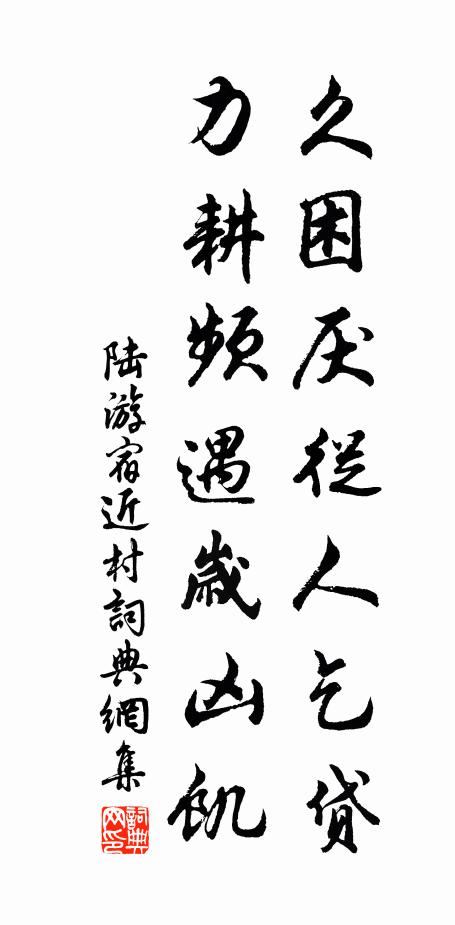 久困厌從人乞貸
力耕频遇歲凶飢
陆游宿近村詞典網集
詞典网印